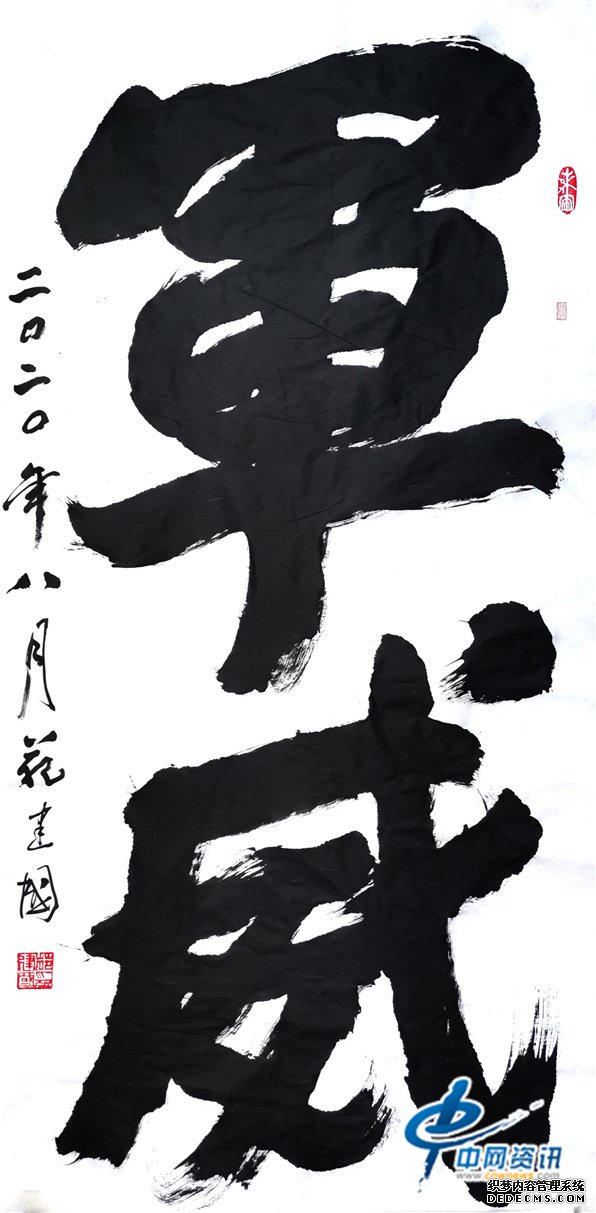 軍威
二〇二〇年八月 建國
中网资讯
www.cnwnews.com
织梦内容管理系统
DEDECMS.COM